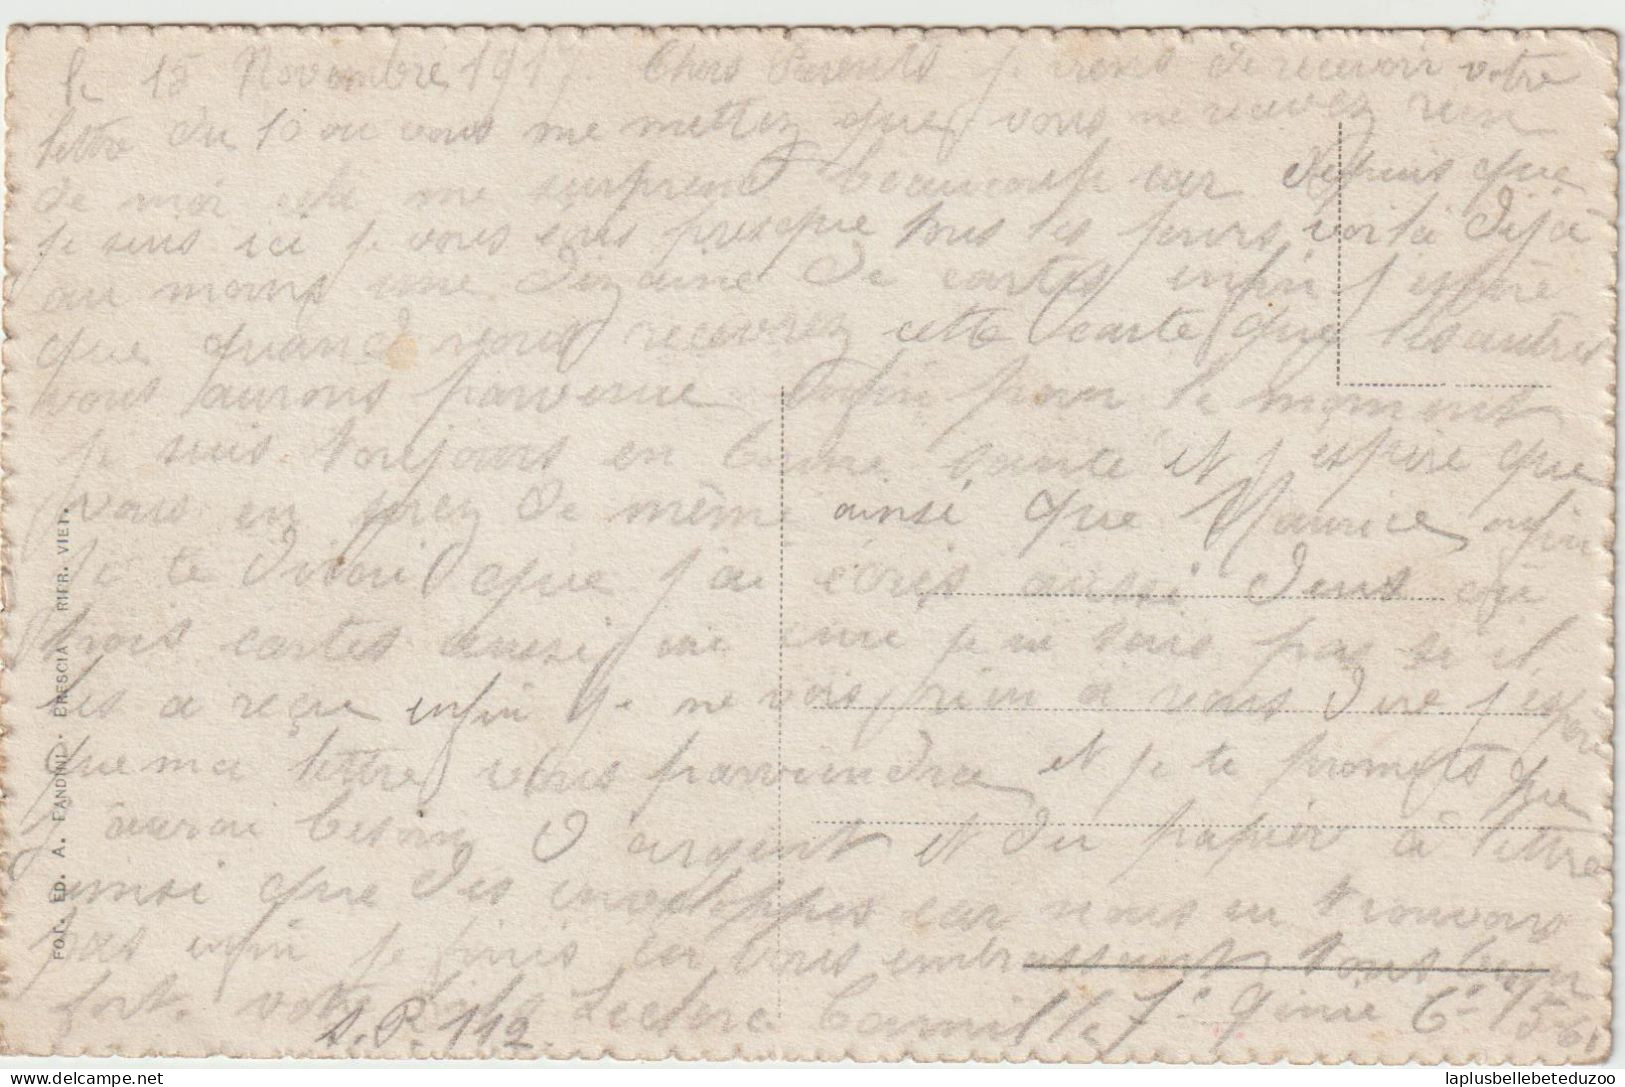 le 15 Novembre 1917. Chers Parents je viens de recevoir votre
lettre du 10 ou vous me mettez que vous ne recevez rien
de moi cela me surprend beaucoup car depuis que
je suis ici je vous écris presque tous les jours, voila déjà
au moins une dizaine de cartes enfin j'espère
que quand vous recevrez cette carte que les autres
vous aurons parvenue Enfin pour le moment
je suis toujours en bonne santé et j'espère que
vous en soyez de même ainsi que Maurice enfin
je te dirai que j'ai écris aussi deus où
trois cartes aussi je ne sais pas si il
les a reçue enfin je ne vois rien a vous dire j'espère
que ma lettre vous parviendra et je te promets que
j'aurai besoin d'argent et du papier à lettre
ainsi que des enveloppes car nous en trouvons
pas enfin je finis en vous embrassant tous bien
fort. votre fils Leclerc Camille 7e Génie Cie 15/61
S.P. 112
FOT. ED. A. PANDINI. BRESCIA RIPR. VIET.
laplusbellebeteduzoo